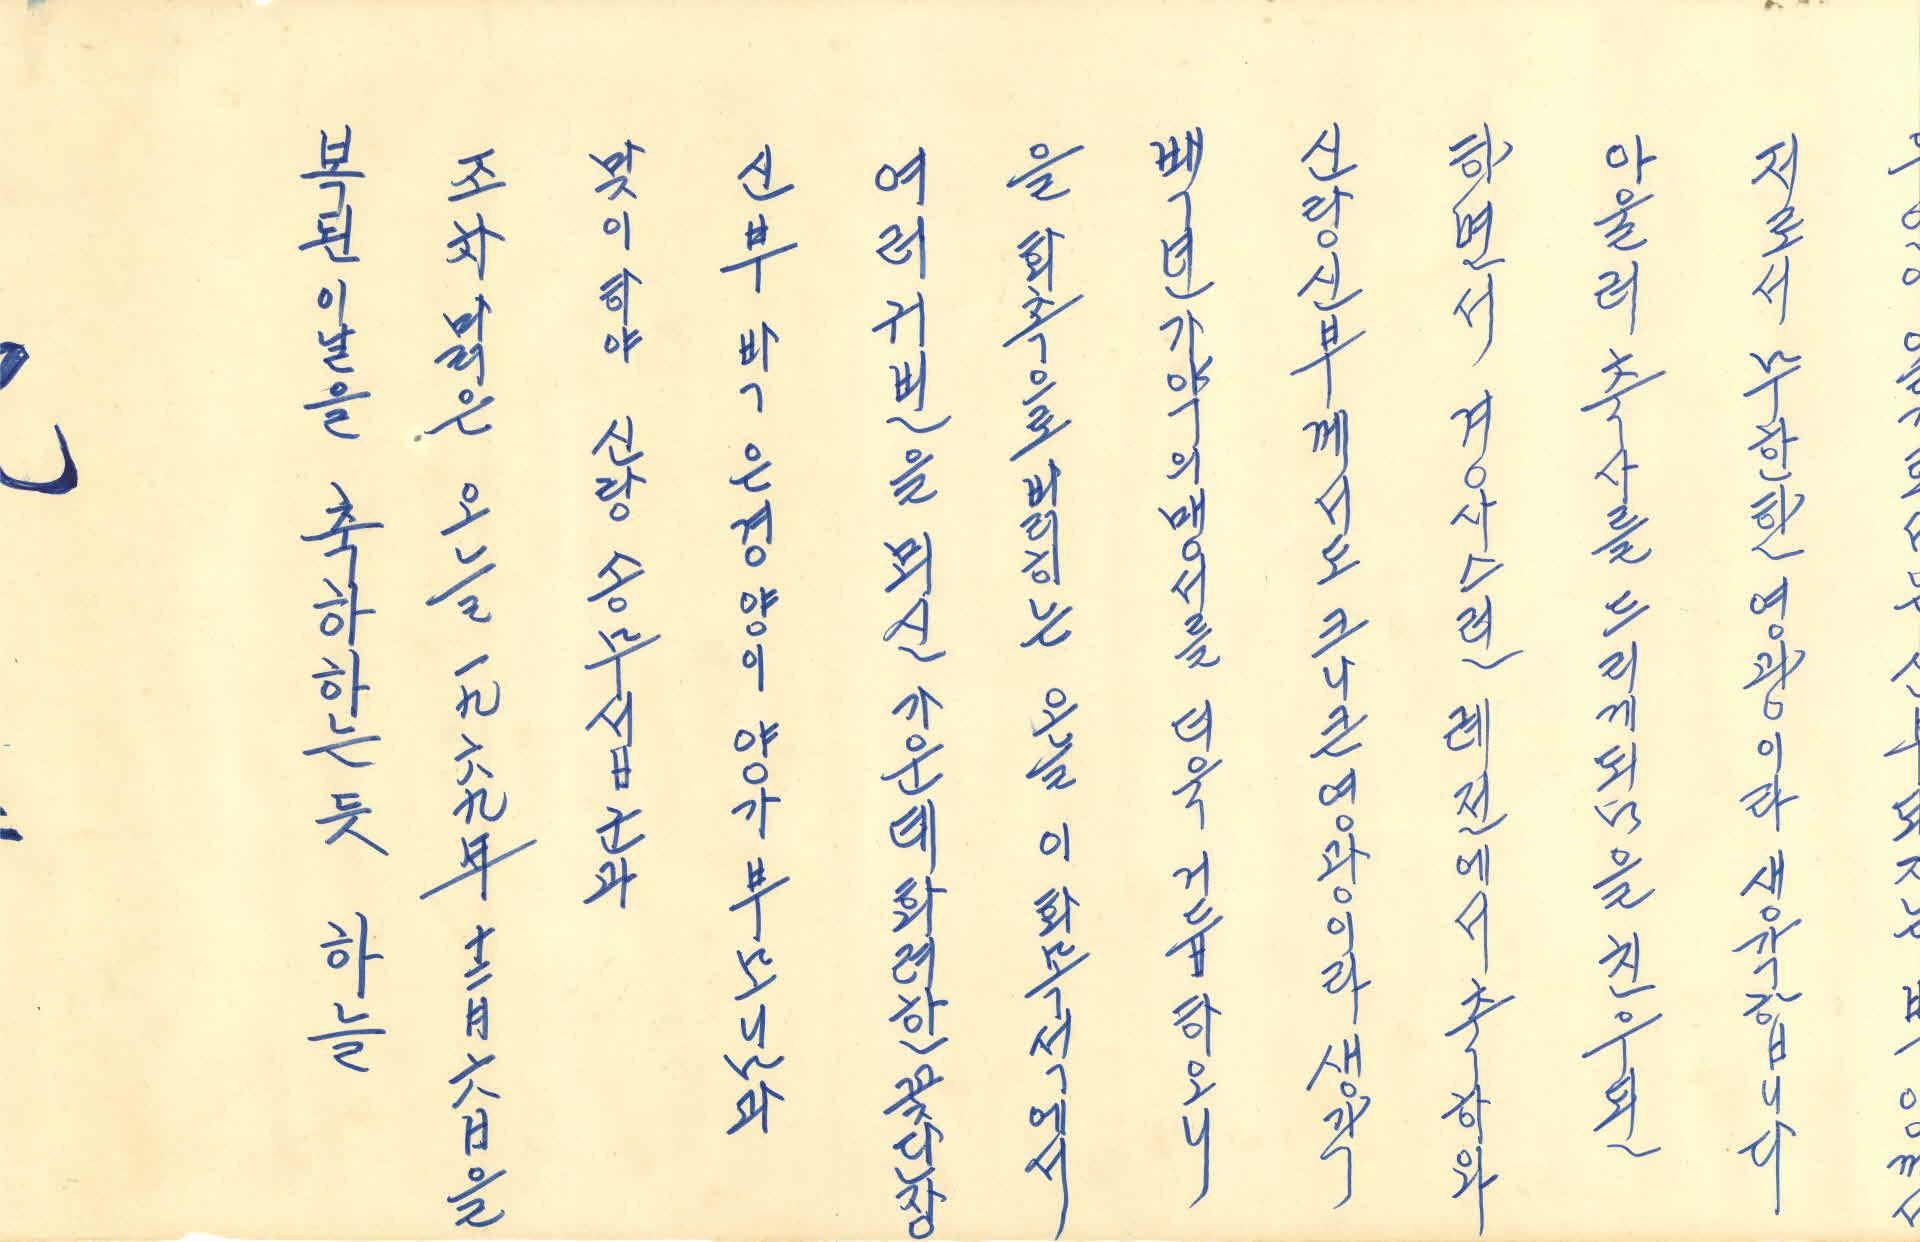 복된 이날을 축하하는 듯 하늘
조차 맑은 오늘 一九六九年 十二月 六日을
맞이하야 신랑 송무섭군과
신부 박은경양이 양가 부모님과
여러 귀빈을 뫼신 가운데 화려한 꽃단장
을 화촉으로 밝히는 오늘 이 화목석에서
백년가약의 맹서를 더욱 거듭하오니
신랑신부께서도 크나큰 영광이라 생각
하면서 경사스런 례전에서 축하와
아울러 축사를 드리게됨을 친우된
저로서 무한한 영광이라 생각합니다